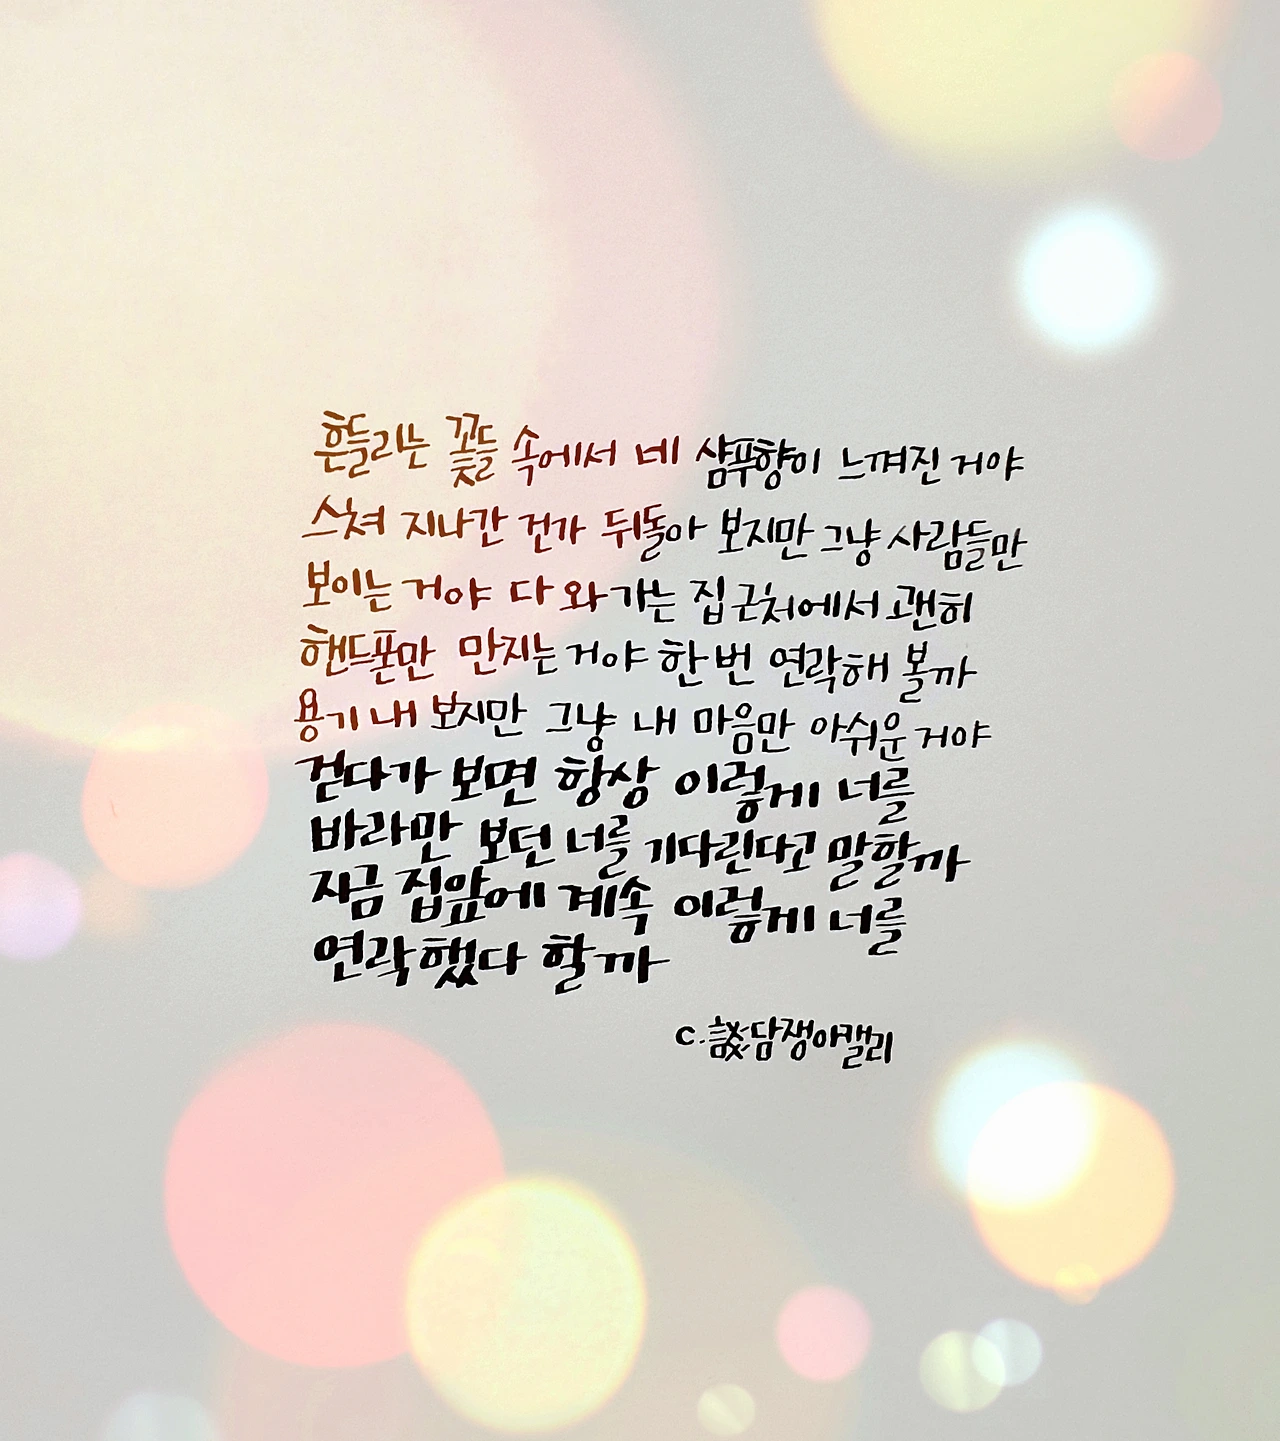 흔들리는 꽃들 속에서 네 샴푸향이 느껴진 거야
스쳐 지나간 건가 뒤돌아 보지만 그냥 사람들만
보이는 거야 다 와가는 집 근처에서 괜히
핸드폰만 만지는 거야 한 번 연락해 볼까
용기 내 보지만 그냥 내 마음만 아쉬운 거야
걷다가 보면 항상 이렇게 너를
바라만 보던 너를 기다린다고 말할까
지금 집앞에 계속 이렇게 너를
연락했다 할까
c. 談담쟁이캘리